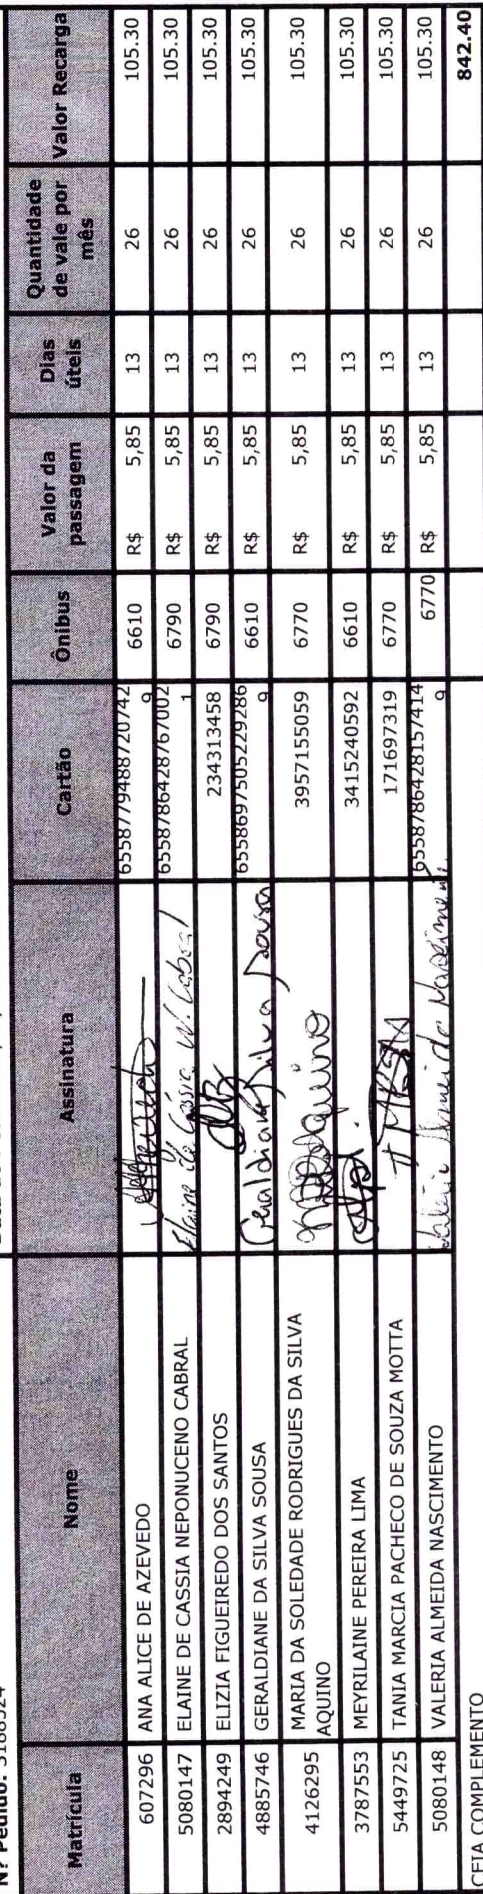 Nº Pedido: 5188524
Matrícula Nome Assinatura Cartão Ônibus Valor da passagem Dias úteis Quantidade de vale por mês Valor Recarga
607296 ANA ALICE DE AZEVEDO 6558779488720742 9 6610 R$ 5,85 13 26 105.30
5080147 ELAINE DE CASSIA NEPONUCENO CABRAL Elaine de Cássia N. Cabral 6558786428767002 1 6790 R$ 5,85 13 26 105.30
2894249 ELIZIA FIGUEIREDO DOS SANTOS 234313458 6790 R$ 5,85 13 26 105.30
4885746 GERALDIANE DA SILVA SOUSA Geraldiane Silva Sousa 6558697505229286 9 6610 R$ 5,85 13 26 105.30
4126295 MARIA DA SOLEDADE RODRIGUES DA SILVA AQUINO 3957155059 6770 R$ 5,85 13 26 105.30
3787553 MEYRILAINE PEREIRA LIMA 3415240592 6610 R$ 5,85 13 26 105.30
5449725 TANIA MARCIA PACHECO DE SOUZA MOTTA 171697319 6770 R$ 5,85 13 26 105.30
5080148 VALERIA ALMEIDA NASCIMENTO Valéria Almeida Nascimento 6558786428157414 9 6770 R$ 5,85 13 26 105.30
842.40
CEIA COMPLEMENTO